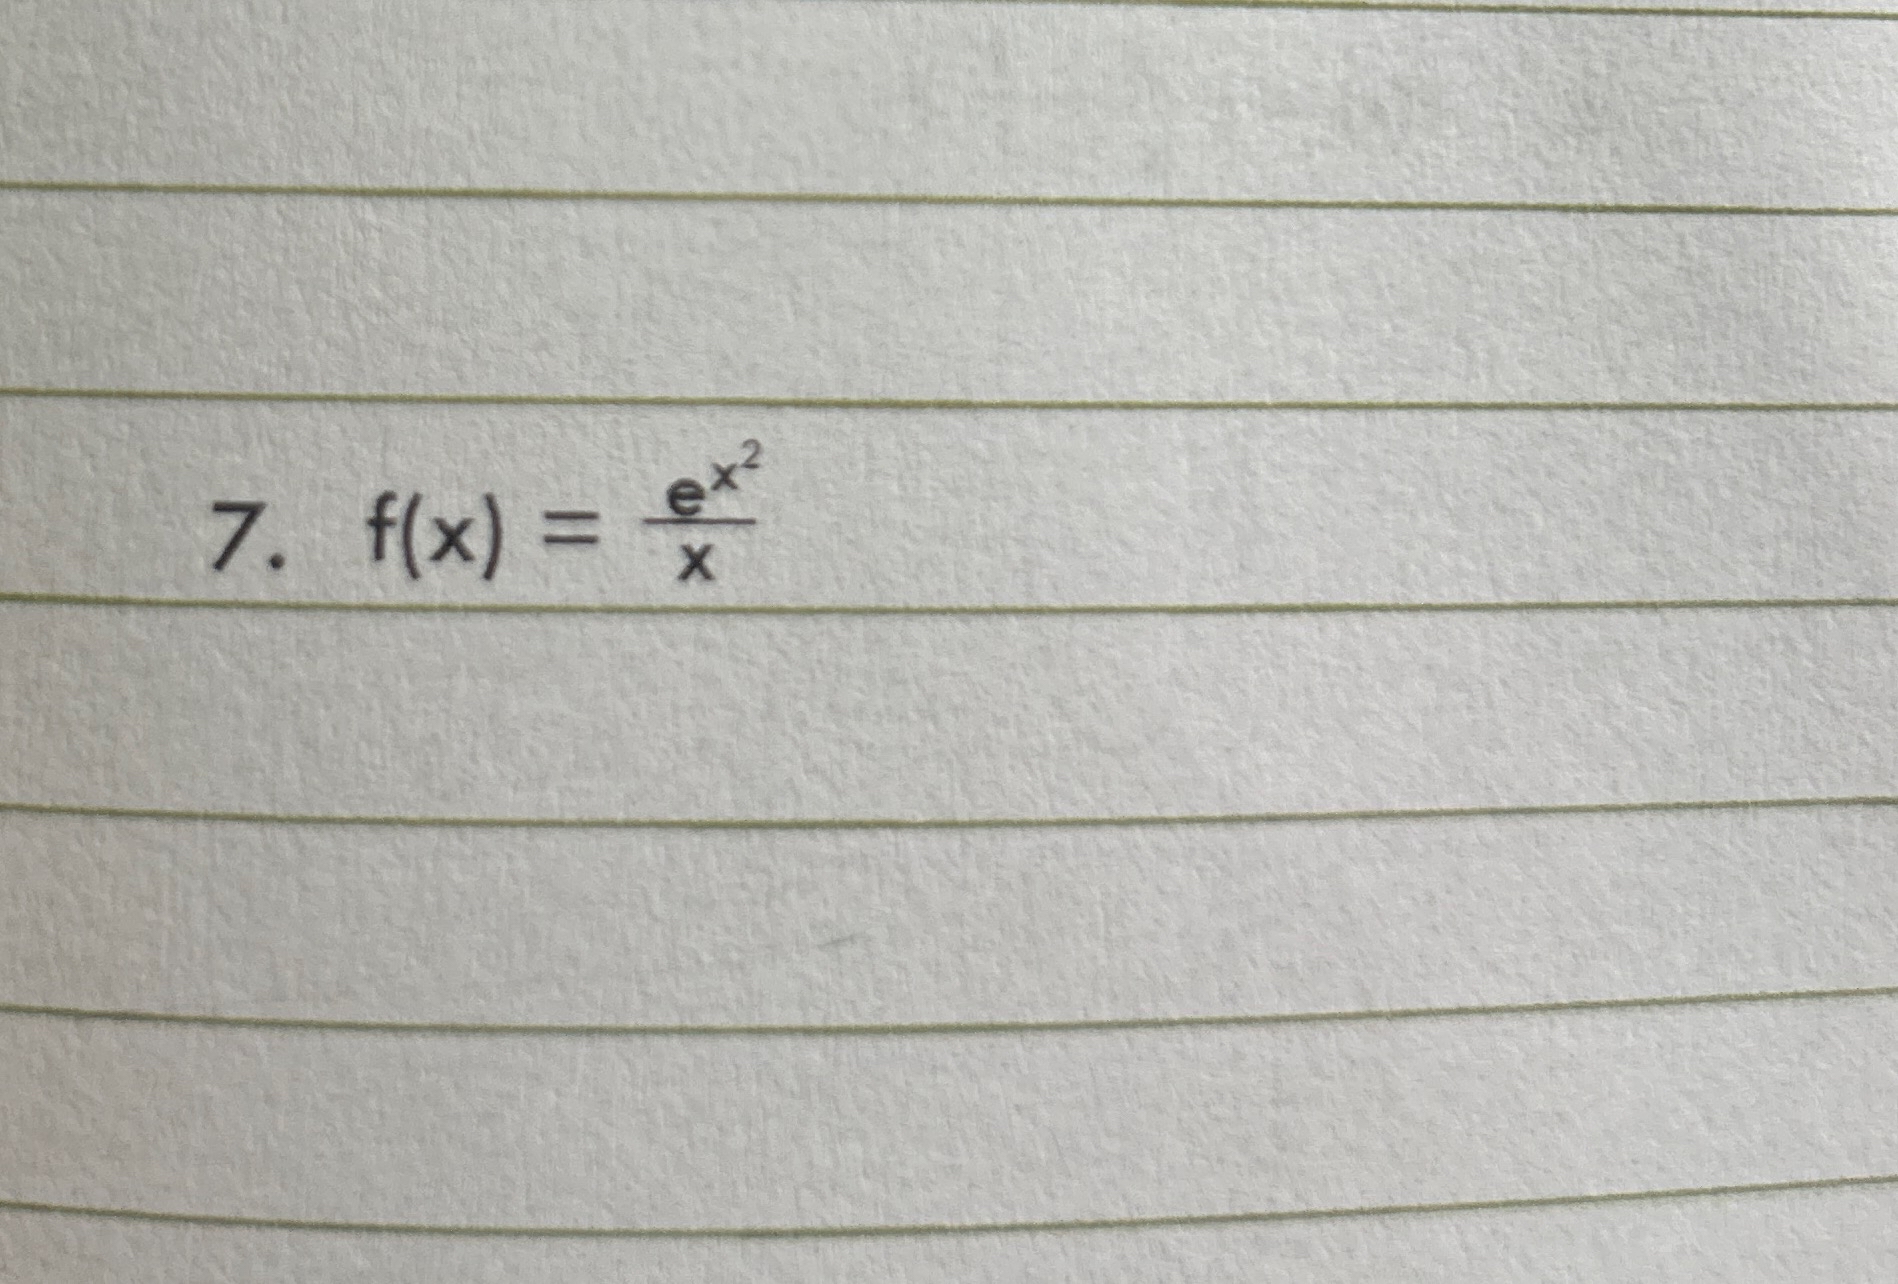 7. f(x) = e^{x^2}/x